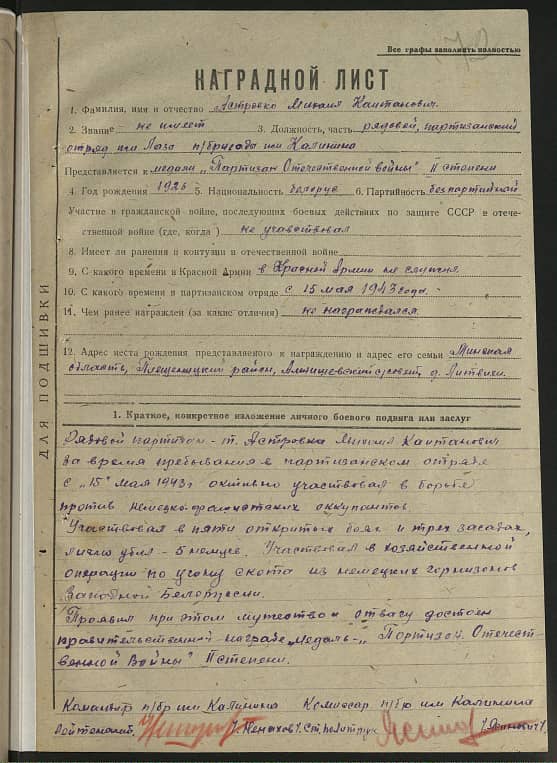 Все графы заполнять полностью
НАГРАДНОЙ ЛИСТ
1. Фамилия, имя и отчество Астровко Михаил Каитанович.
2. Звание не имеет 3. Должность, часть рядовой, партизанский
отряд им Лазо п/бригады им Калинина
Представляется к медали „Партизан Отечественной войны" II степени
4. Год рождения 1926 5. Национальность белорус 6. Партийность беспартийный
Участие в гражданской войне, последующих боевых действиях по защите СССР и отече-
ственной войне (где, когда) не участвовал
8. Имеет ли ранения и контузии в отечественной войне
9. С какого времени в Красной Армии в Красной Армии не служил
10. С какого времени в партизанском отряде с 15 мая 1943 года.
11. Чем ранее награжден (за какие отличия) не награждался.
12. Адрес места рождения представляемого к награждению и адрес его семьи Минская
область, Плещеницкий район, д. Литвичи.
ДЛЯ ПОДШИВКИ
1. Краткое, конкретное изложение личного боевого подвига или заслуг
Рядовой партизан - т. Астровка Михаил Каитанович
за время пребывания в партизанском отряде
с „15" мая 1943г активно участвовал в борьбе
против немецко-фашистских оккупантов.
Участвовал в пяти открытых боях и трех засадах,
лично убил - 5 немцев. Участвовал в хозяйственной
операции по угону скота из немецких гарнизонов
Западной Белоруссии.
Проявил при этом мужество и отвагу достоен
правительственной награде „медаль-„ Партизан Отечест-
венной Войны" II степени.
Командир п/бр им Калинина Комиссар п/бр им Калинина
Лейтенант. Ст. политрук